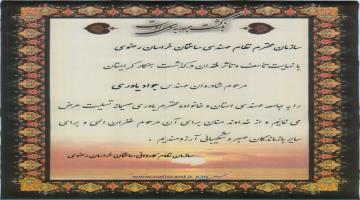 بازگشت همه بسوی اوست
سازمان محترم نظام مهندسی ساختمان خراسان رضوی
با نهایت تاسف و تاثر فقدان و درگذشت همکار گرامیتان
مرحوم شادروان مهندس جواد یاوری
را به جامعه مهندسی استان و خانواده محترم یاوری صمیمانه تسلیت عرض
می نمائیم و از خداوند منان برای آن مرحوم غفران الهی و برای
سایر بازماندگان صبر و شکیبایی آرزومندیم
سازمان نظام کاردانی ساختمان خراسان رضوی
www.nafiscard.ir